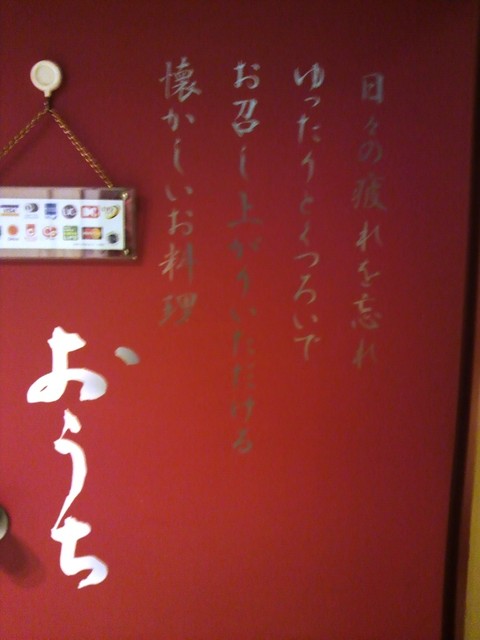 日々の疲れを忘れ
ゆったりとくつろいで
お召し上がりいただける
懐かしいお料理
おうち